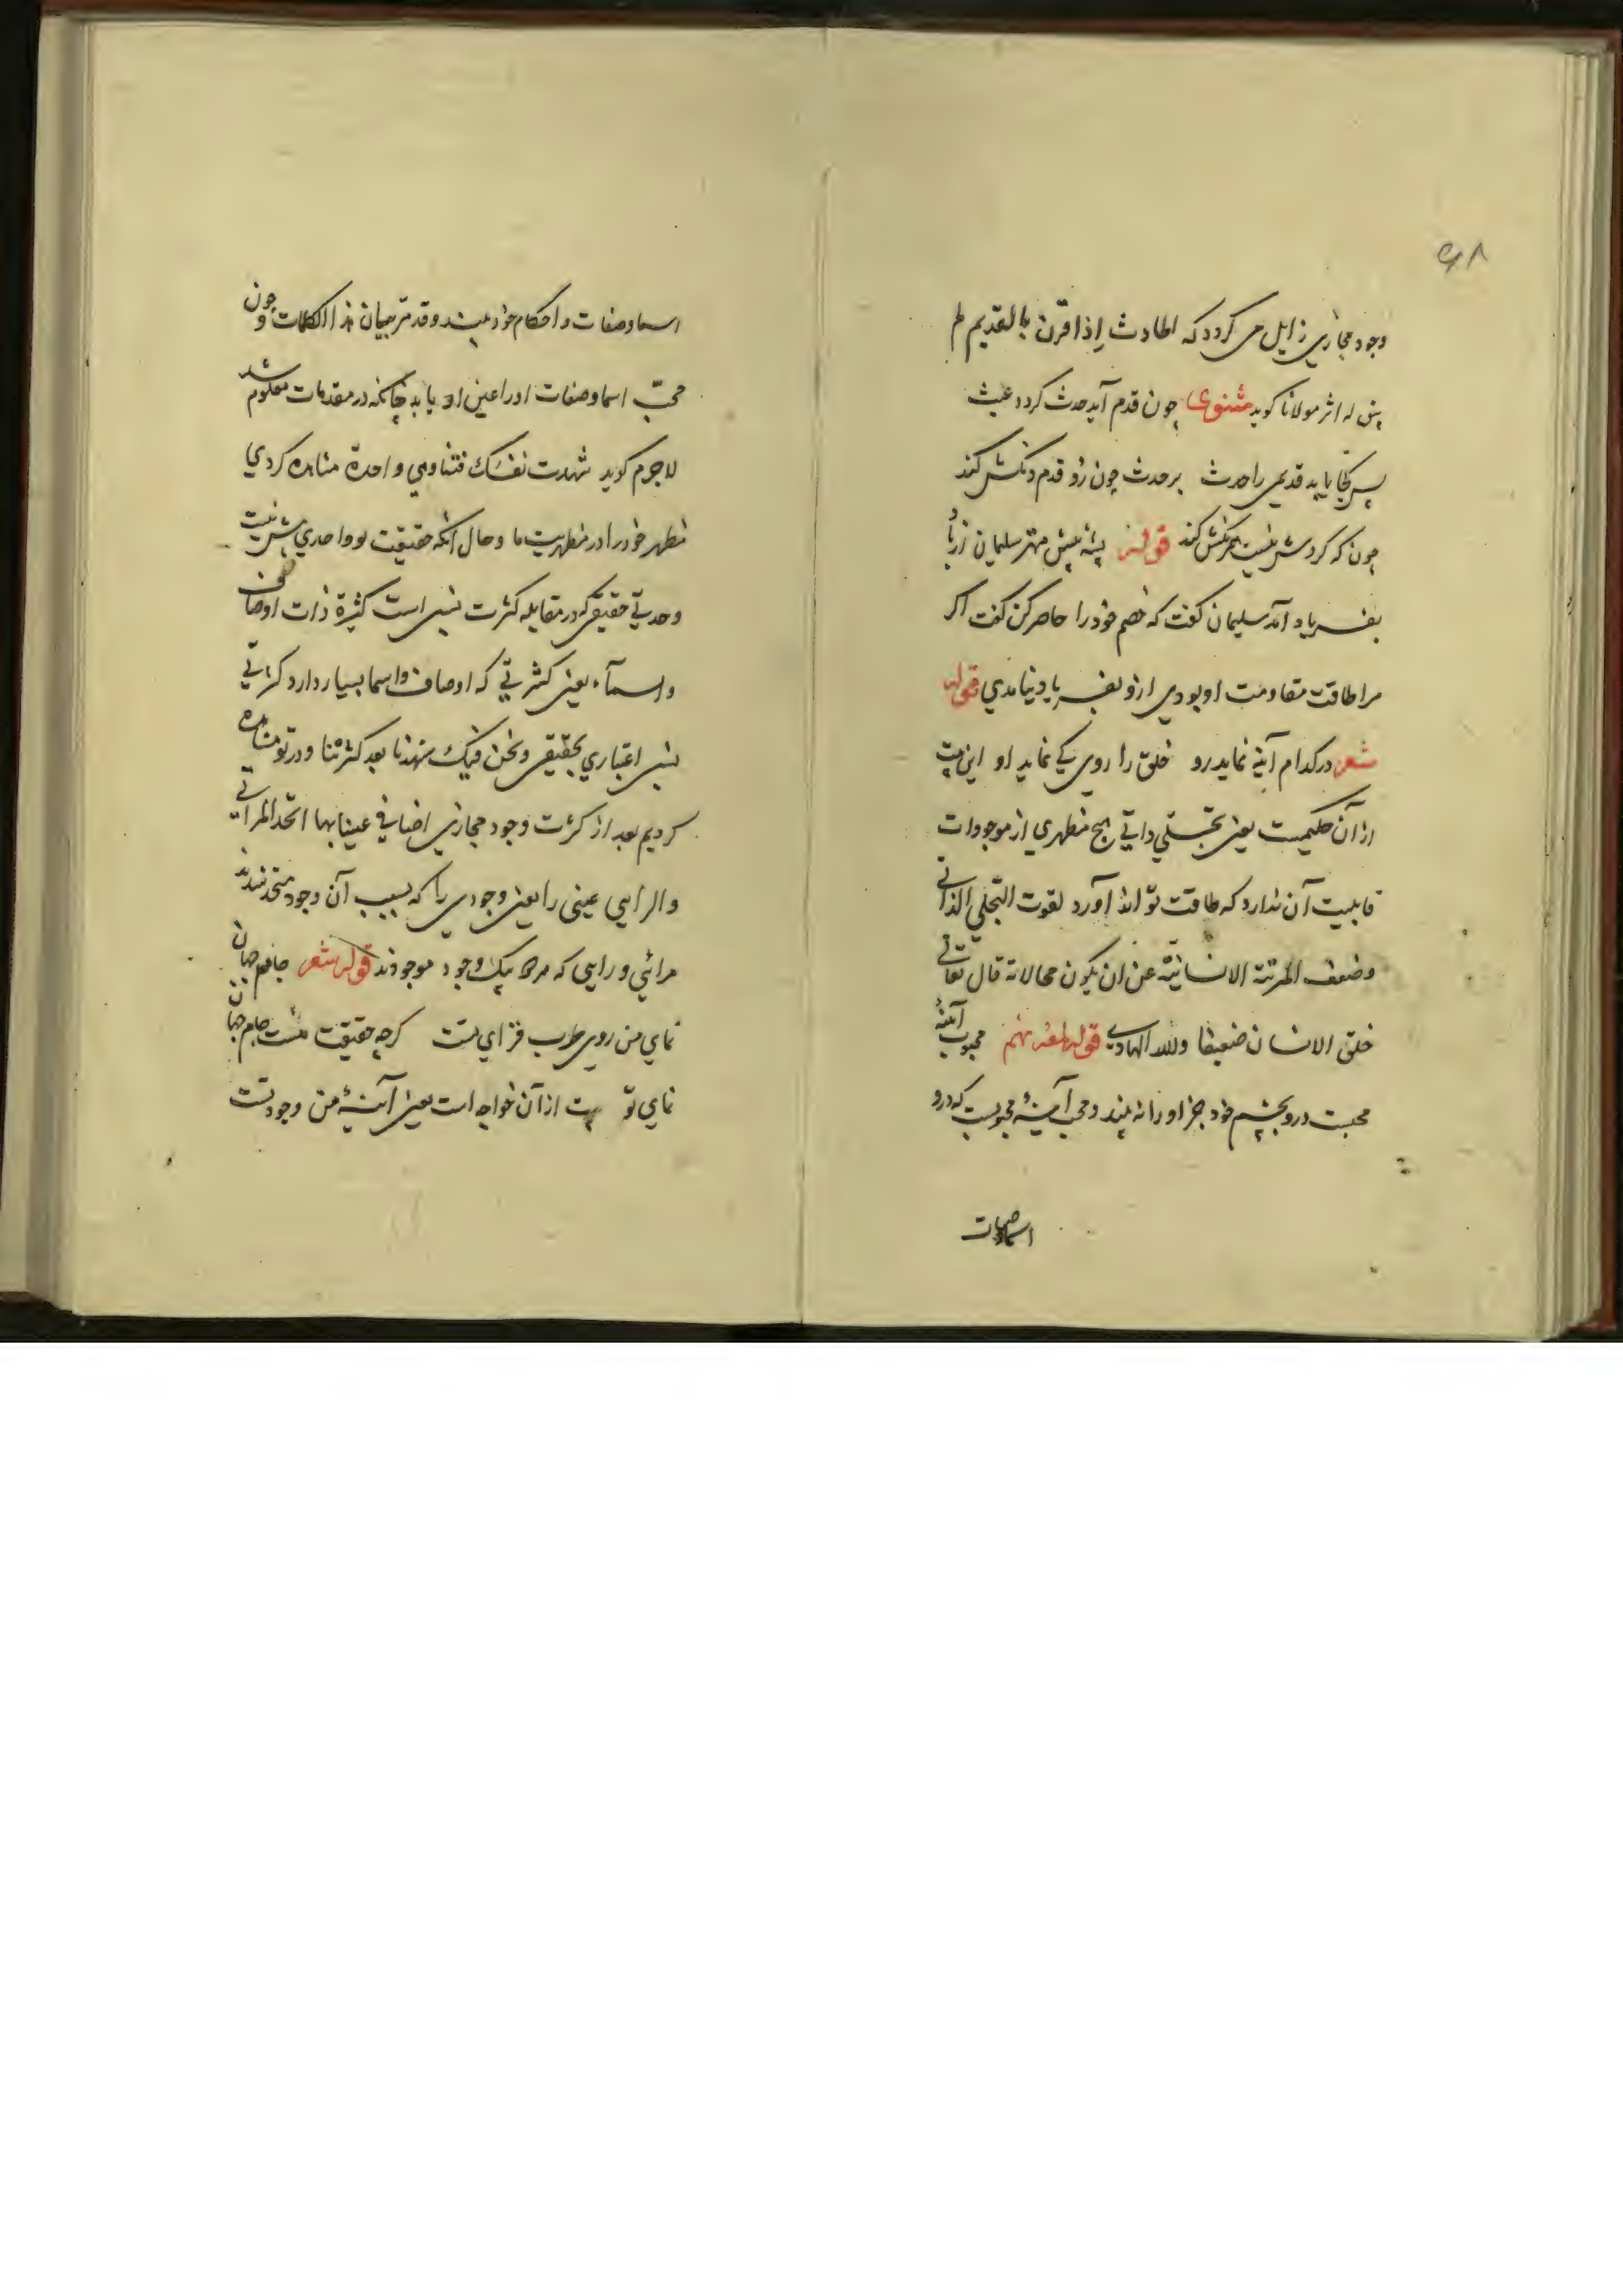 ۶۸
وجود مجازی زایل می کردد که الحادث اذا قرن بالقدیم لم
یبق له اثر مولانا کوید مثنوی چون قدم آید حدث کردد عبث
پس کجا یابد قدیمی را حدث بر حدث چون زد قدم دنکش کند
چون که کردش نیست همرنکش کند قوله پشه پیش مهتر سلیمان از باد
بفریاد آمد سلیمان کفت که خصم خود را حاضر کن کفت اکر
مرا طاقت مقاومت او بودی ازو بفریاد نیامدی قوله
شعر در کدام آینه نماید رو خلق را روی کی نماید او این بیت
از آن حکیمست یعنی تجلی ذاتی هیچ مظهری از موجودات
قابلیت آن ندارد که طاقت تواند آورد لقوت التجلی الذاتی
وضعف المرتبة الانسانیة عن ان یکون محالا له قال تعالی
خلق الانسان ضعیفا والله الهادی قوله لمعه نهم محبوب آینهٔ
محبست درو بچشم خود جز او را نه بیند ومحب آینهٔ محبوبست که درو
اسما وصفات
اسما وصفات و احکام خود بیند وقد مر بیان هذا الکلمات و چون
محبّ اسما وصفات او را عین او یابد چنانکه در مقدمات معلوم شد
لاجرم کوید شهدت نفسک فینا وهی واحدة مشاهده کردی
مظهر خود را در مظهریت ما وحال آنکه حقیقت تو واحدی بیش نیست
وحدتی حقیقی که در مقابله کثرت نسبی است کثیرة ذات اوصاف
واسمآء یعنی کثرتی که اوصاف واسما بسیار دارد کثرتی
نسبی اعتباری بحقیقی ونحن فیک شهدنا بعد کثرتنا ودر تو مشاهده
کردیم بعد از کثرت وجود مجازی اضافی عینا بها اتحد المرائی
والرائی عینی را یعنی وجودی را که بسبب آن وجود متحد شدند
مرائی و رایی که هر دو بیک وجود موجودند قوله شعر جام جهان
نمای من روی طرب فزای تست کرچه حقیقت منست جام جهان
نمای تو بیت از آن خواجه است یعنی آینهٔ من وجود تست